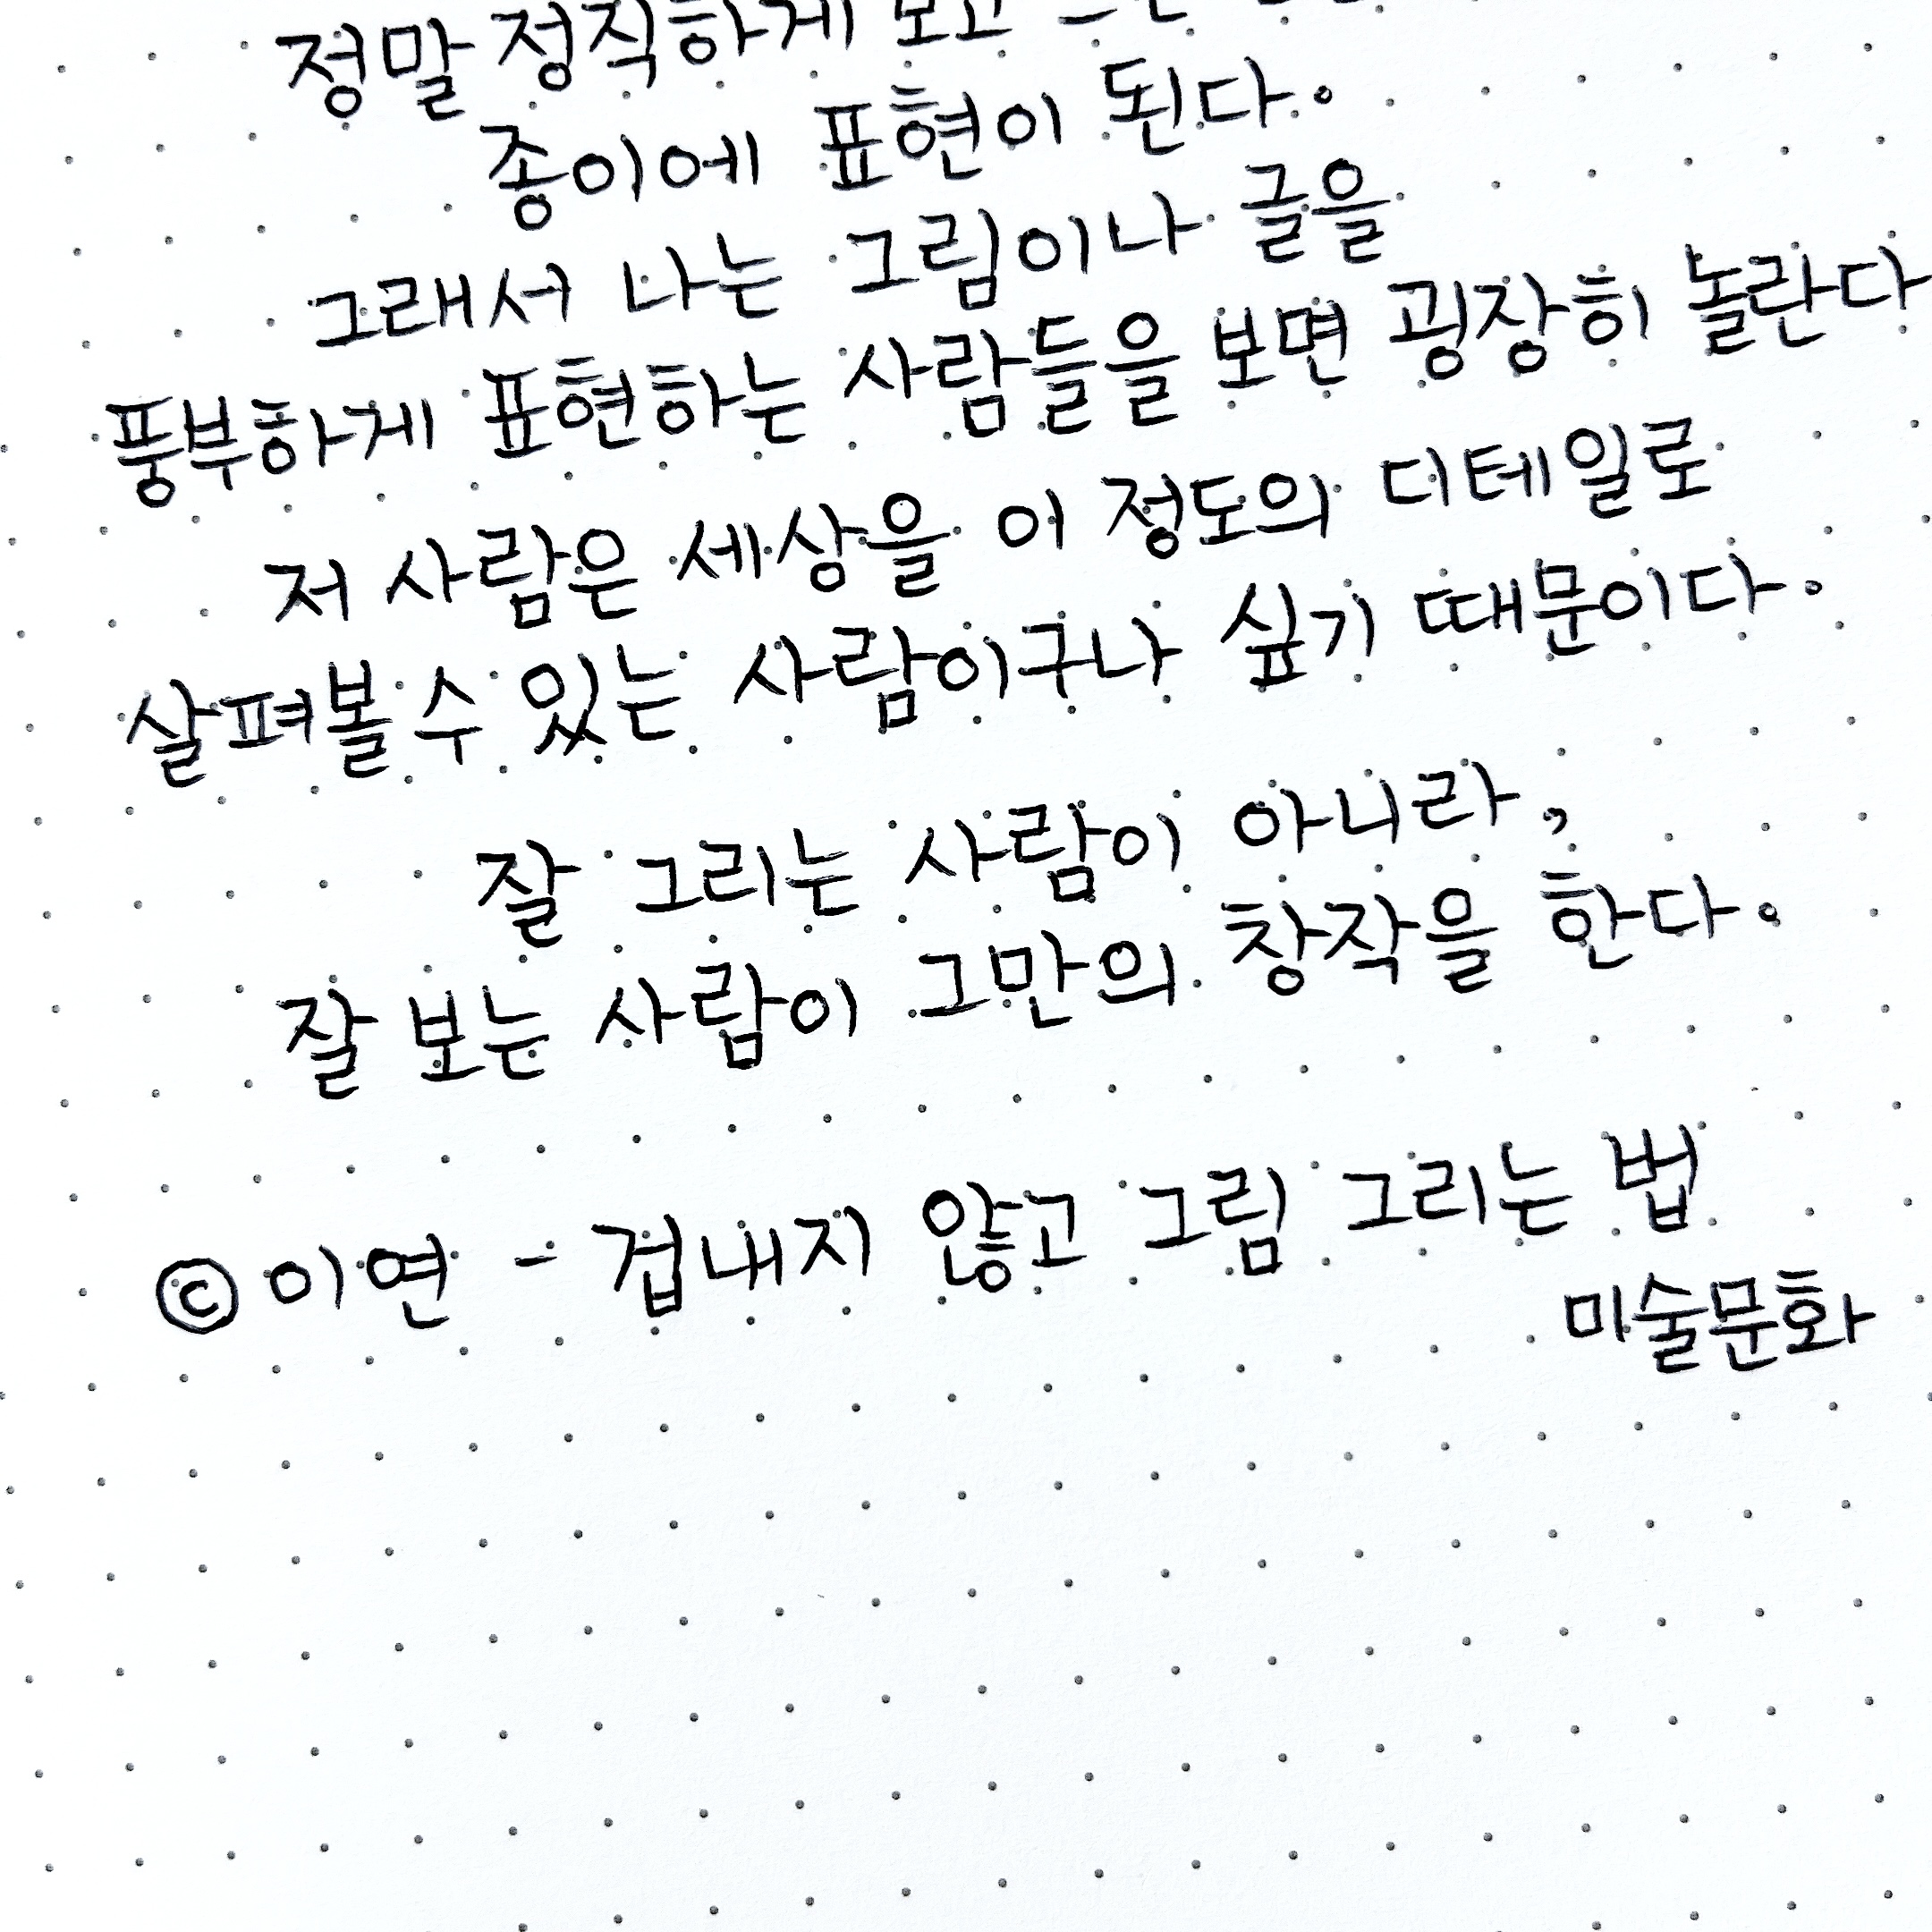 정말 정직하게 보고
종이에 표현이 된다.
그래서 나는 그림이나 글을
풍부하게 표현하는 사람들을 보면 굉장히 놀란다
저 사람은 세상을 이 정도의 디테일로
살펴볼 수 있는 사람이구나 싶기 때문이다.
잘 그리는 사람이 아니라,
잘 보는 사람이 그만의 창작을 한다.
© 이연 - 겁내지 않고 그림 그리는 법
미술문화